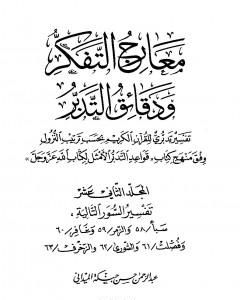 معارج التفكر
ودقائق التدبر
تفسير تدبري للقرآن الكريم بحسب ترتيب النزول
وفق منهج كتاب «قواعد التدبر الأمثل لكتاب الله عز وجل»
المجلد الثاني عشر
تفسير السور التالية:
سبأ/٥٨ والزمر/٥٩ وغافر/٦٠
وفصلت/٦١ والشورى/٦٢ والزخرف/٦٣
عبد الرحمن حسن حبنكة الميداني